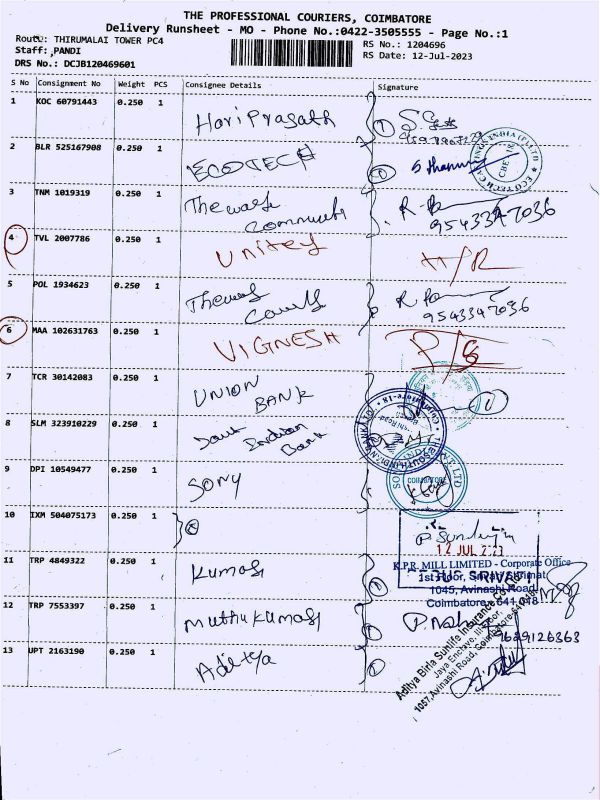 THE PROFESSIONAL COURIERS, COIMBATORE
Delivery Runsheet - MO - Phone No.:0422-3505555 - Page No.:1
Route: THIRUMALAI TOWER PC4 RS No.: 1204696
Staff: PANDI RS Date: 12-Jul-2023
DRS No.: DCJB120469601
S No Consignment No Weight PCS Consignee Details Signature
1 KOC 60791443 0.250 1 Hari Prasath
2 BLR 525167908 0.250 1 ECOTECH
3 TNM 1019319 0.250 1 9543347036
4 TVL 2007786 0.250 1 Unitey H/R
5 POL 1934623 0.250 1 9543347036
6 MAA 102631763 0.250 1 VIGNESH
7 TCR 30142083 0.250 1 UNION BANK
8 SLM 323910229 0.250 1 South Indian Bank
9 DPI 10549477 0.250 1 SONY
COIMBATORE
10 IXM 504075173 0.250 1
12 JUL 2023
K.P.R. MILL LIMITED - Corporate Office
11 TRP 4849322 0.250 1 Kumar
1st Floor, Srivari Shrimat
1045, Avinashi Road
Coimbatore - 641 018
12 TRP 7553397 0.250 1 Muthukumar
13 UPT 2163190 0.250 1 Aditya
Aditya Birla Sunlife Insurance Co
Jaya Enclave, III Floor,
1057, Avinashi Road, Coimbatore-641 018